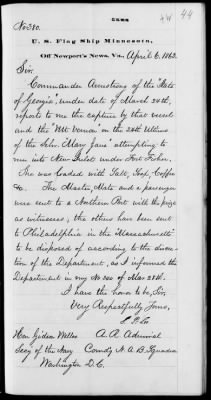 No 380.
U. S. Flag Ship Minnesota,
Off Newport's News, Va., April 6, 1863.
Sir:
Commander Armstrong of the "State
of Georgia", under date of March 28th,
reports to me the capture by that vessel
and the "Mt Vernon" on the 24th Ultimo
of the Schr "Mary Jane" attempting to
run into New Inlet under Fort Fisher.
She was loaded with Salt, Soap, Coffee
&c. The Master, Mate and a passenger
was sent to a Northern Port with the prize
as witnesses, the others has been sent
to Philadelphia in the "Massachusetts"
to be disposed of according to the direc-
tion of the Department, as I informed the
Department in my No 350 of Mar 28th.
I have the honor to be, Sir,
Very Respectfully Yours,
S. P. Lee
Hon Gideon Welles A. R. Admiral
Secy of the Navy Comdg N. A. B. Squadron
Washington D.C.
44